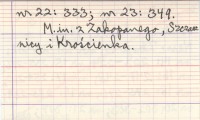 nr 22: 333; nr 23: 349.
M.in. z Zakopanego, Szczaw
nicy i Krościenka.